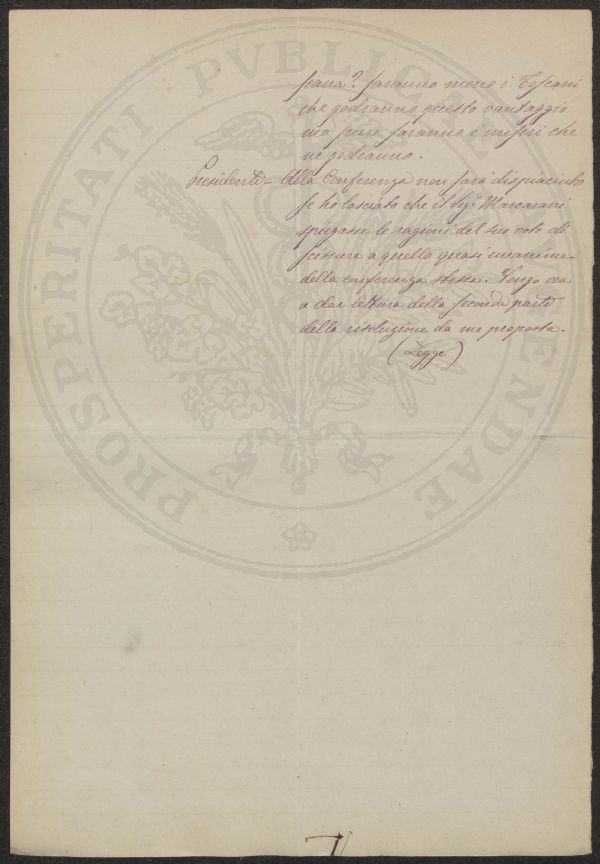 scana? saranno meno i Toscani
che godranno questo vantaggio
ma pure saranno i miseri che
ne godranno.
Presidente = Alla Conferenza non sarà dispiaciuto
se ho lasciato che il Sig. Maccarani
spiegasse le ragioni del suo voto di
scissura a quella quasi unanime
della conferenza stessa. Vengo ora
a dar lettura della seconda parte
della risoluzione da me proposta.
(Legge)
PROSPERITATI PVBLICAE AVGENDAE